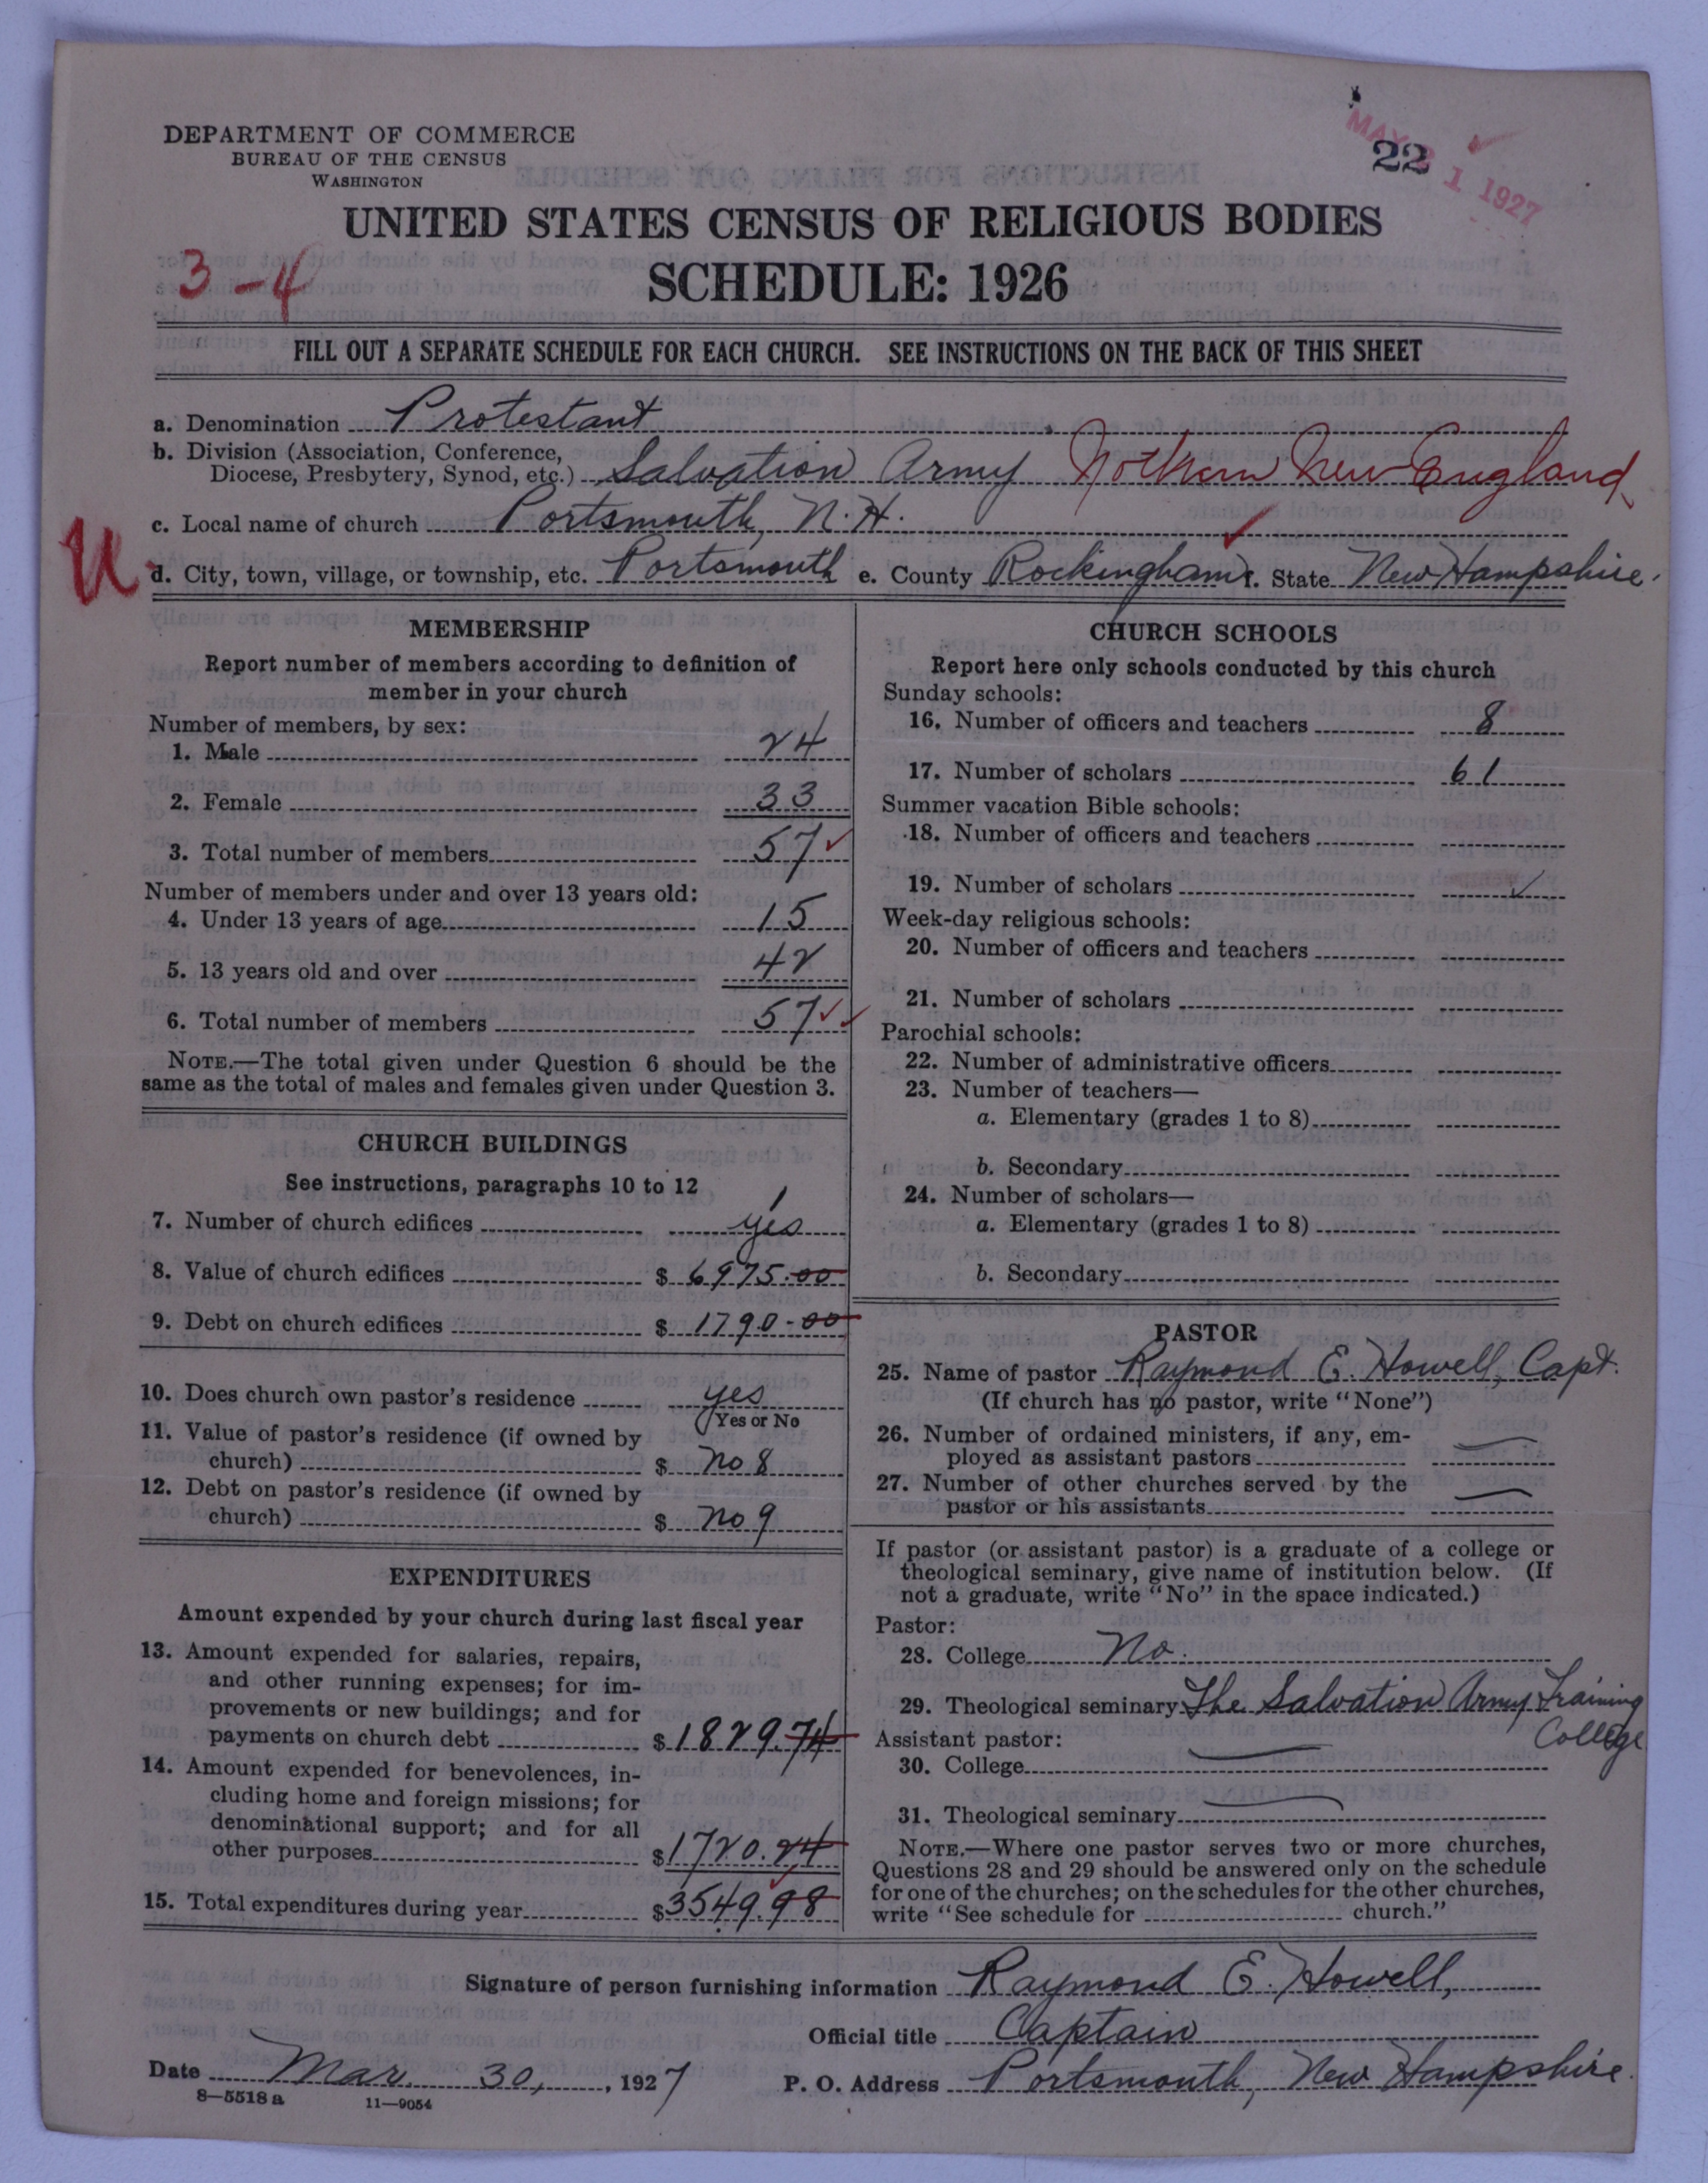 DEPARTMENT OF COMMERCE
BUREAU OF THE CENSUS
WASHINGTON
22
MAY 1 1927
UNITED STATES CENSUS OF RELIGIOUS BODIES
3-4
SCHEDULE: 1926
FILL OUT A SEPARATE SCHEDULE FOR EACH CHURCH. SEE INSTRUCTIONS ON THE BACK OF THIS SHEET
a. Denomination Protestant
b. Division (Association, Conference,
Diocese, Presbytery, Synod, etc.) Salvation Army Nothern New England
c. Local name of church Portsmouth, N.H.
U
d. City, town, village, or township, etc. Portsmouth e. County Rockingham f. State New Hampshire.
MEMBERSHIP
Report number of members according to definition of
member in your church
Number of members, by sex:
1. Male 24
2. Female 33
3. Total number of members 57
Number of members under and over 13 years old:
4. Under 13 years of age 15
5. 13 years old and over 42
6. Total number of members 57
NOTE.—The total given under Question 6 should be the
same as the total of males and females given under Question 3.
CHURCH BUILDINGS
See instructions, paragraphs 10 to 12
1
7. Number of church edifices yes
8. Value of church edifices $ 6975.00
9. Debt on church edifices $ 1790-00
10. Does church own pastor's residence yes
(Yes or No
11. Value of pastor's residence (if owned by
church) $ no 8
12. Debt on pastor's residence (if owned by
church) $ no 9
EXPENDITURES
Amount expended by your church during last fiscal year
13. Amount expended for salaries, repairs,
and other running expenses; for im-
provements or new buildings; and for
payments on church debt $ 1829.74
14. Amount expended for benevolences, in-
cluding home and foreign missions; for
denominational support; and for all
other purposes $ 1720.24
15. Total expenditures during year $ 3549.98
CHURCH SCHOOLS
Report here only schools conducted by this church
Sunday schools:
16. Number of officers and teachers 8
17. Number of scholars 61
Summer vacation Bible schools:
18. Number of officers and teachers
19. Number of scholars
Week-day religious schools:
20. Number of officers and teachers
21. Number of scholars
Parochial schools:
22. Number of administrative officers
23. Number of teachers—
a. Elementary (grades 1 to 8)
b. Secondary
24. Number of scholars—
a. Elementary (grades 1 to 8)
b. Secondary
PASTOR
25. Name of pastor Raymond E. Howell, Capt.
(If church has no pastor, write "None")
26. Number of ordained ministers, if any, em-
ployed as assistant pastors
27. Number of other churches served by the
pastor or his assistants
If pastor (or assistant pastor) is a graduate of a college or
theological seminary, give name of institution below. (If
not a graduate, write "No" in the space indicated.)
Pastor:
28. College No.
29. Theological seminary The Salvation Army Training
College
Assistant pastor:
30. College
31. Theological seminary
NOTE.—Where one pastor serves two or more churches,
Questions 28 and 29 should be answered only on the schedule
for one of the churches; on the schedules for the other churches,
write "See schedule for church."
Signature of person furnishing information Raymond E. Howell,
Official title Captain
Date Mar. 30, , 1927
P. O. Address Portsmouth, New Hampshire.
8—5518 a 11—9054